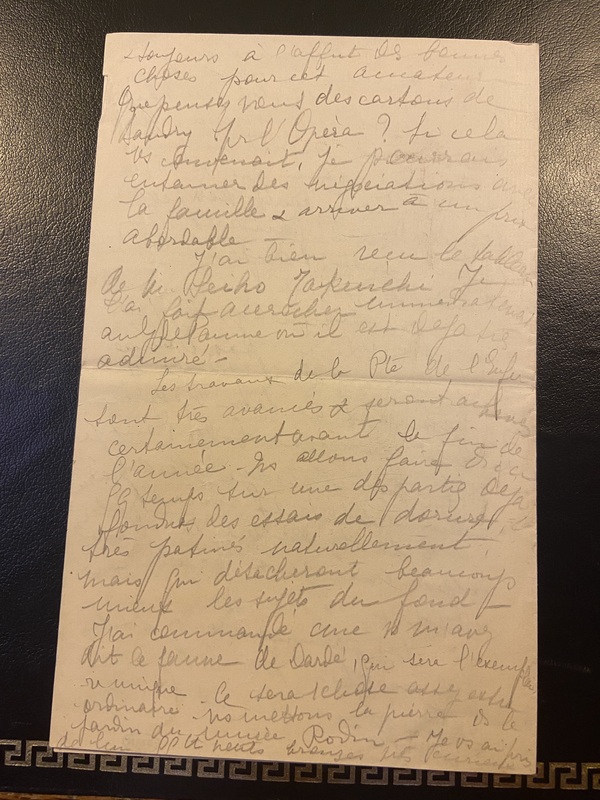 & toujours à l'affut des bonnes
choses pour cet amateur
Que pensez vous des cartons de
Baudry pr l'Opéra ? Si cela
vs convenait, je pourrais
entamer des négociations avec
la famille & arriver à un prix
abordable —
J'ai bien reçu le tableau
de M. Seiho Takeuchi Je
l'ai fait accrocher immédiatement
au où il est déjà très
admiré —
Les travaux de la Pte de l'Enfer
sont très avancés & seront achevés
certainement avant la fin de
l'année - Ns allons faire d'ici
qq temps sur une des parties déjà
fondues des essais de dorure,
très patinés naturellement,
mais qui détacheront beaucoup
mieux les sujets du fond —
J'ai commandé que v m'avez
dit le faune de Dardé, qui sera l'exemplaire
unique ce sera 1 chose assez extra
ordinaire ns mettons la pierre ds le
jardin du musée Rodin — Je vs ai
petits bronzes